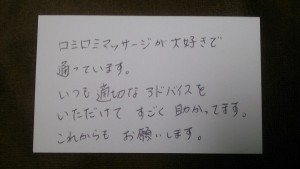 ロミロミマッサージが大好きで
通っています。
いつも適切なアドバイスを
いただけて すごく助かってます。
これからも お願いします。